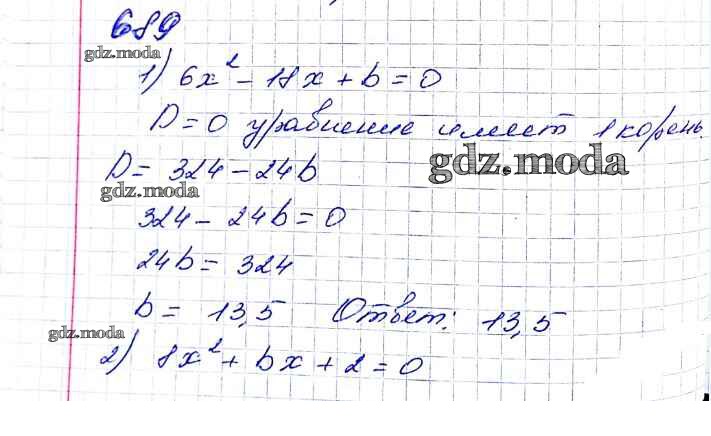 689
gdz.moda
1) 6x² - 18x + b = 0
D = 0 уравнение имеет 1 корень.
gdz.moda
D = 324 - 24b
gdz.moda
324 - 24b = 0
24b = 324
b = 13,5 Ответ: 13,5
gdz.moda
2) 8x² + bx + 2 = 0